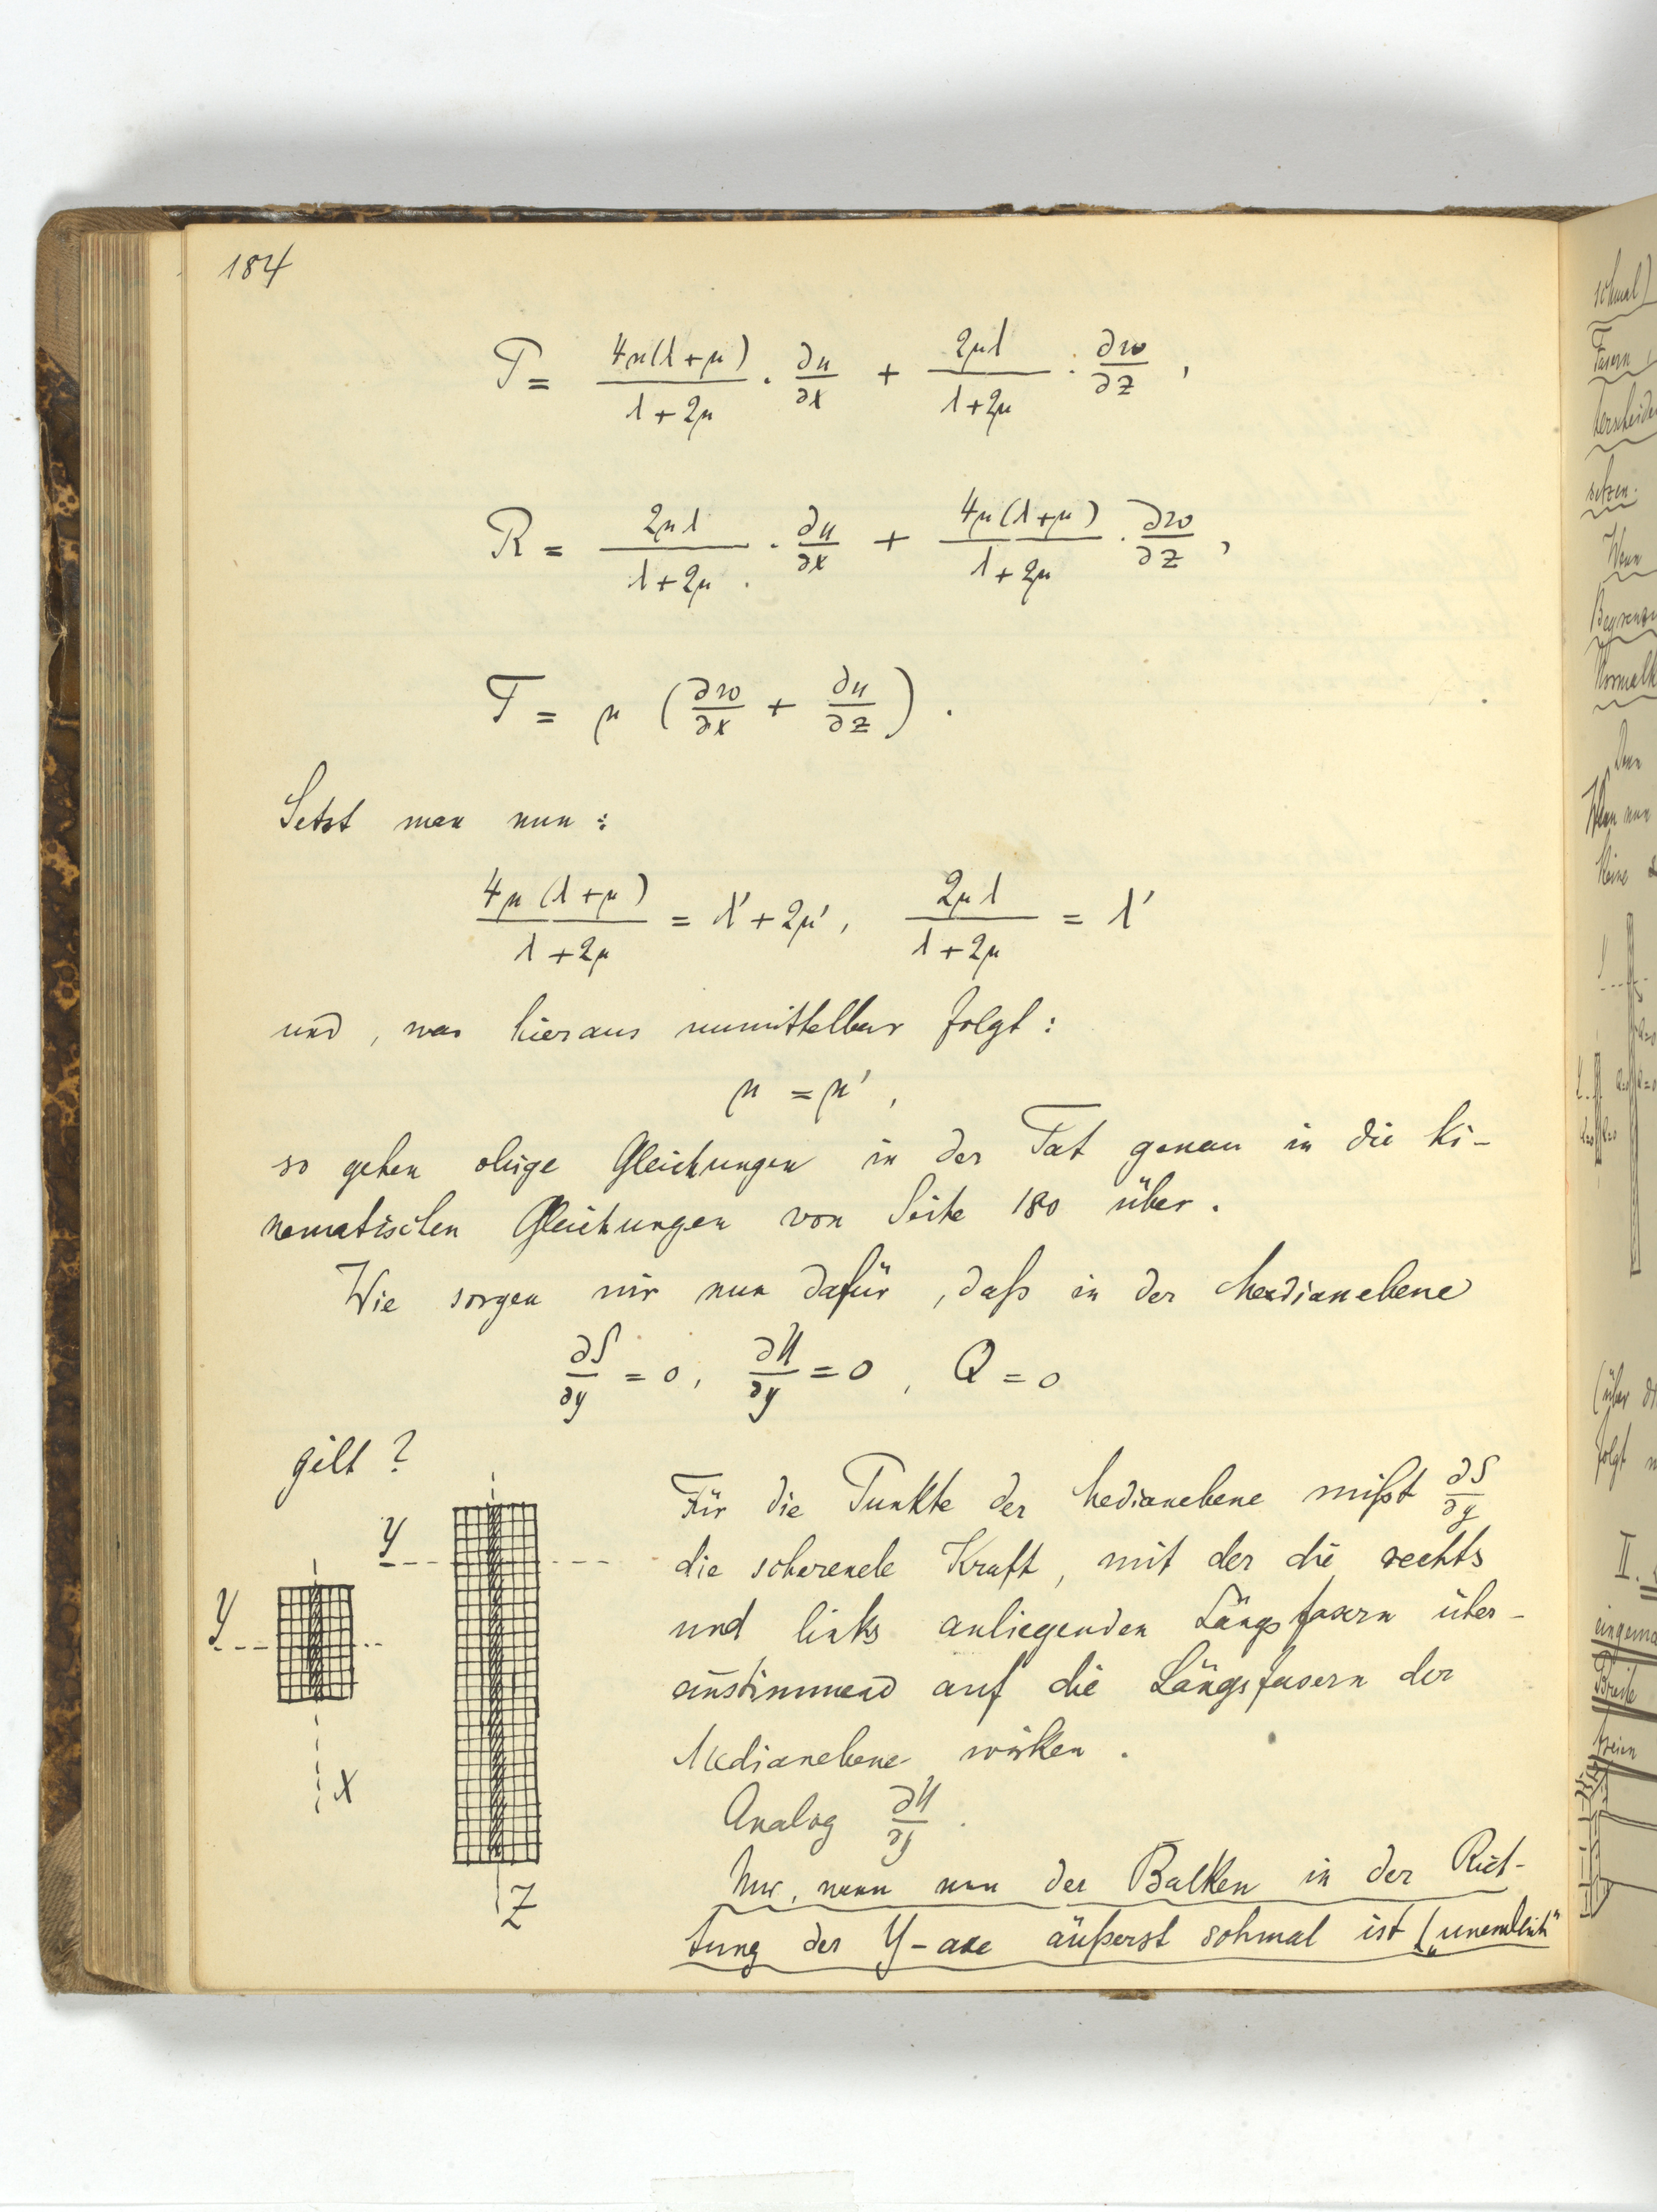 184
P = 4μ(λ+μ)/(λ+2μ) · ∂u/∂x + 2μλ/(λ+2μ) · ∂w/∂z ,
R = 2μλ/(λ+2μ) · ∂u/∂x + 4μ(λ+μ)/(λ+2μ) · ∂w/∂z ,
T = μ (∂w/∂x + ∂u/∂z) .
Setzt man nun :
4μ(λ+μ)/(λ+2μ) = λ'+2μ', 2μλ/(λ+2μ) = λ'
und, was hieraus unmittelbar folgt :
μ = μ' ,
so gehen obige Gleichungen in der Tat genau in die ki-
nematischen Gleichungen von Seite 180 über.
Wie sorgen wir nun dafür, daß in der Medianebene
∂S/∂y = 0, ∂U/∂y = 0, Q = 0
gilt ?
Für die Punkte der Medianebene mißt ∂S/∂y
die scherende Kraft, mit der die rechts
und links anliegenden Längsfasern über-
einstimmend auf die Längsfasern der
Medianebene wirken.
Analog ∂U/∂y .
Nur, wenn nun der Balken in der Rich-
tung der Y-axe äußerst schmal ist („unendlich"
Y
X
Y
Z
schmal)
Fasern
setzen.
Wenn
Denn
Wenn nun
keine
(über
folgt
II.
Breite
freien